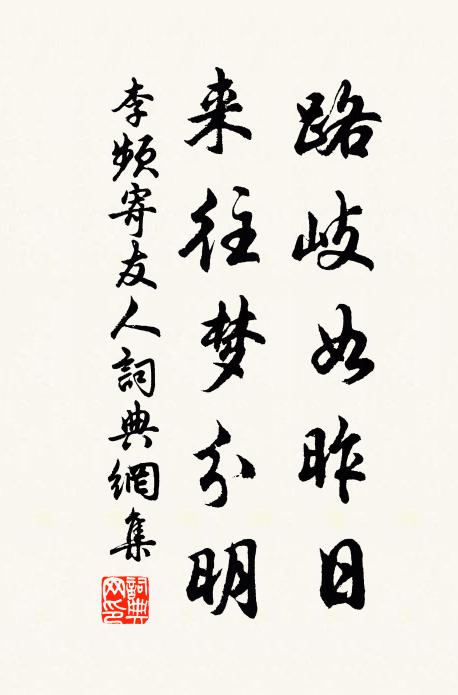 路岐如昨日
来往梦分明
李频寄友人詞典網集
詞典网印